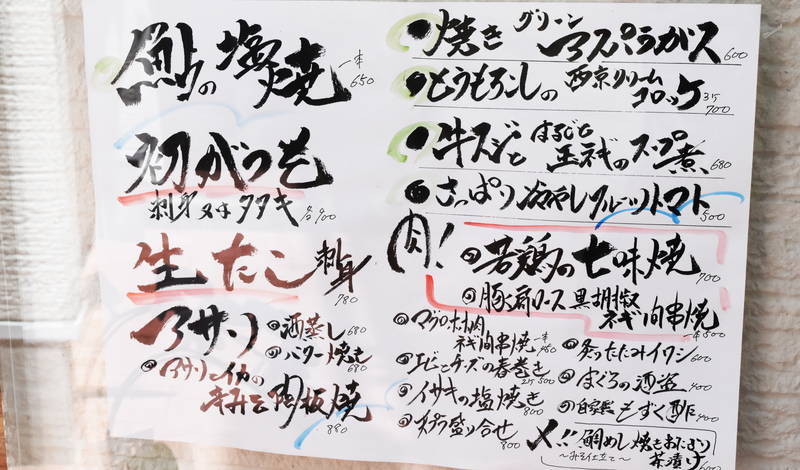 鮎の塩焼 一本650
初がつお
刺身又はタタキ 各900
生たこ 刺身 780
アサリ
酒蒸し 680
バター焼き 680
アサリとイカの
辛みそ陶板焼 880
焼き グリーンアスパラガス 600
とうもろこしの 西京クリームコロッケ 700
牛スジと まるごと玉ネギのスープ煮 680
さっぱり冷やしフルーツトマト 500
肉!
若鶏の七味焼 700
豚肩ロース 黒胡椒
ネギ間串焼 一本500
マグロホホ肉
ネギ間串焼 一本
エビとチーズの春巻き 500
イサキの塩焼き 800
天プラ盛り合せ 800
炙ったたみイワシ 600
まぐろの酒盗 400
自家製もずく酢 400
〆!! 鯛めし 焼きおにぎり
茶漬け